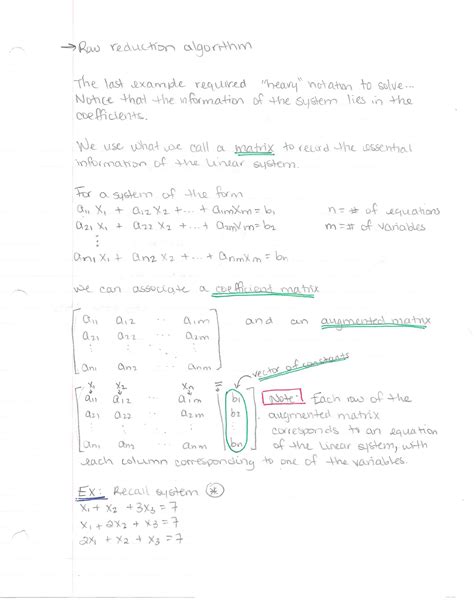 →Row reduction algorithm
The last example required "heavy" notation to solve...
Notice that the information of the system lies in the
coefficients.
We use what we call a matrix to record the essential
information of the linear system.
For a system of the form
a11 x1 + a12 x2 + ... + a1m xm = b1    n = # of equations
a21 x1 + a22 x2 + ... + a2m xm = b2    m = # of variables
⋮
an1 x1 + an2 x2 + ... + anm xm = bn
we can associate a coefficient matrix
[ a11 a12 ... a1m ]    and an augmented matrix
a21 a22 ... a2m
⋮ ⋮ ⋮
an1 an2 ... anm
vector of constants
x1 x2 ... xn =
[ a11 a12 ... a1m | b1 ]    Note: Each row of the
a21 a22 ... a2m b2    augmented matrix
⋮ ⋮ ⋮    corresponds to an equation
an1 an2 ... anm bn    of the linear system, with
each column corresponding to one of the variables.
EX: Recall system *
x1 + x2 + 3x3 = 7
x1 + 2x2 + x3 = 7
2x1 + x2 + x3 = 7